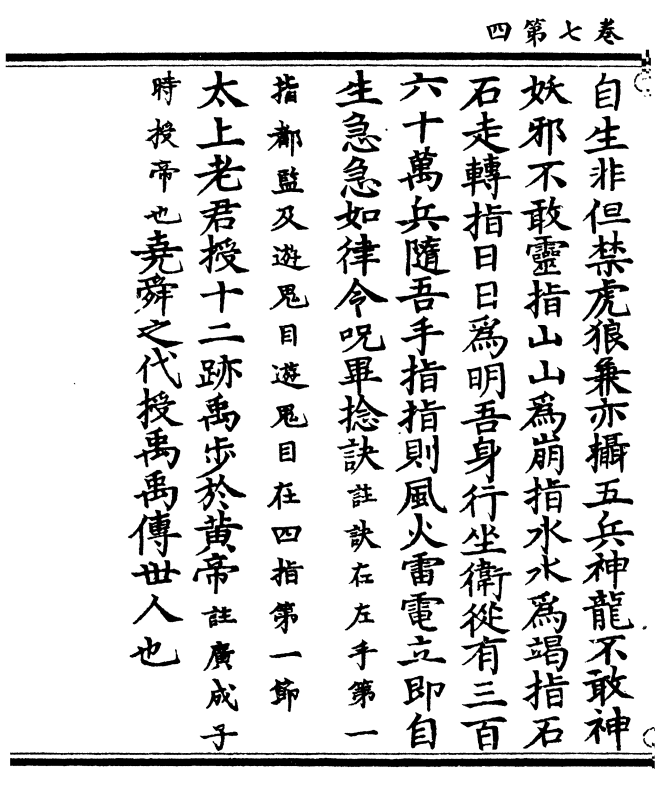 卷七第四
自生非但禁虎狼兼亦攝五兵神龍不敢神
妖邪不敢靈指山山為崩指水水為竭指石
石走轉指日日為明吾身行坐衛從有三百
六十萬兵隨吾手指指則風火雷電立即自
生急急如律令呪畢捻訣註訣在左手第一
指都監及遊鬼目遊鬼目在四指第一節
太上老君授十二跡禹步於黃帝註廣成子
時授帝也堯舜之代授禹禹傳世人也